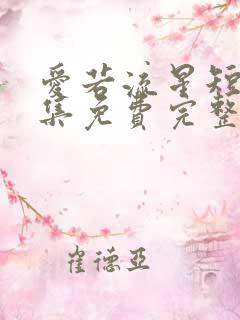 爱若流星短
集免费完整
崔德亚